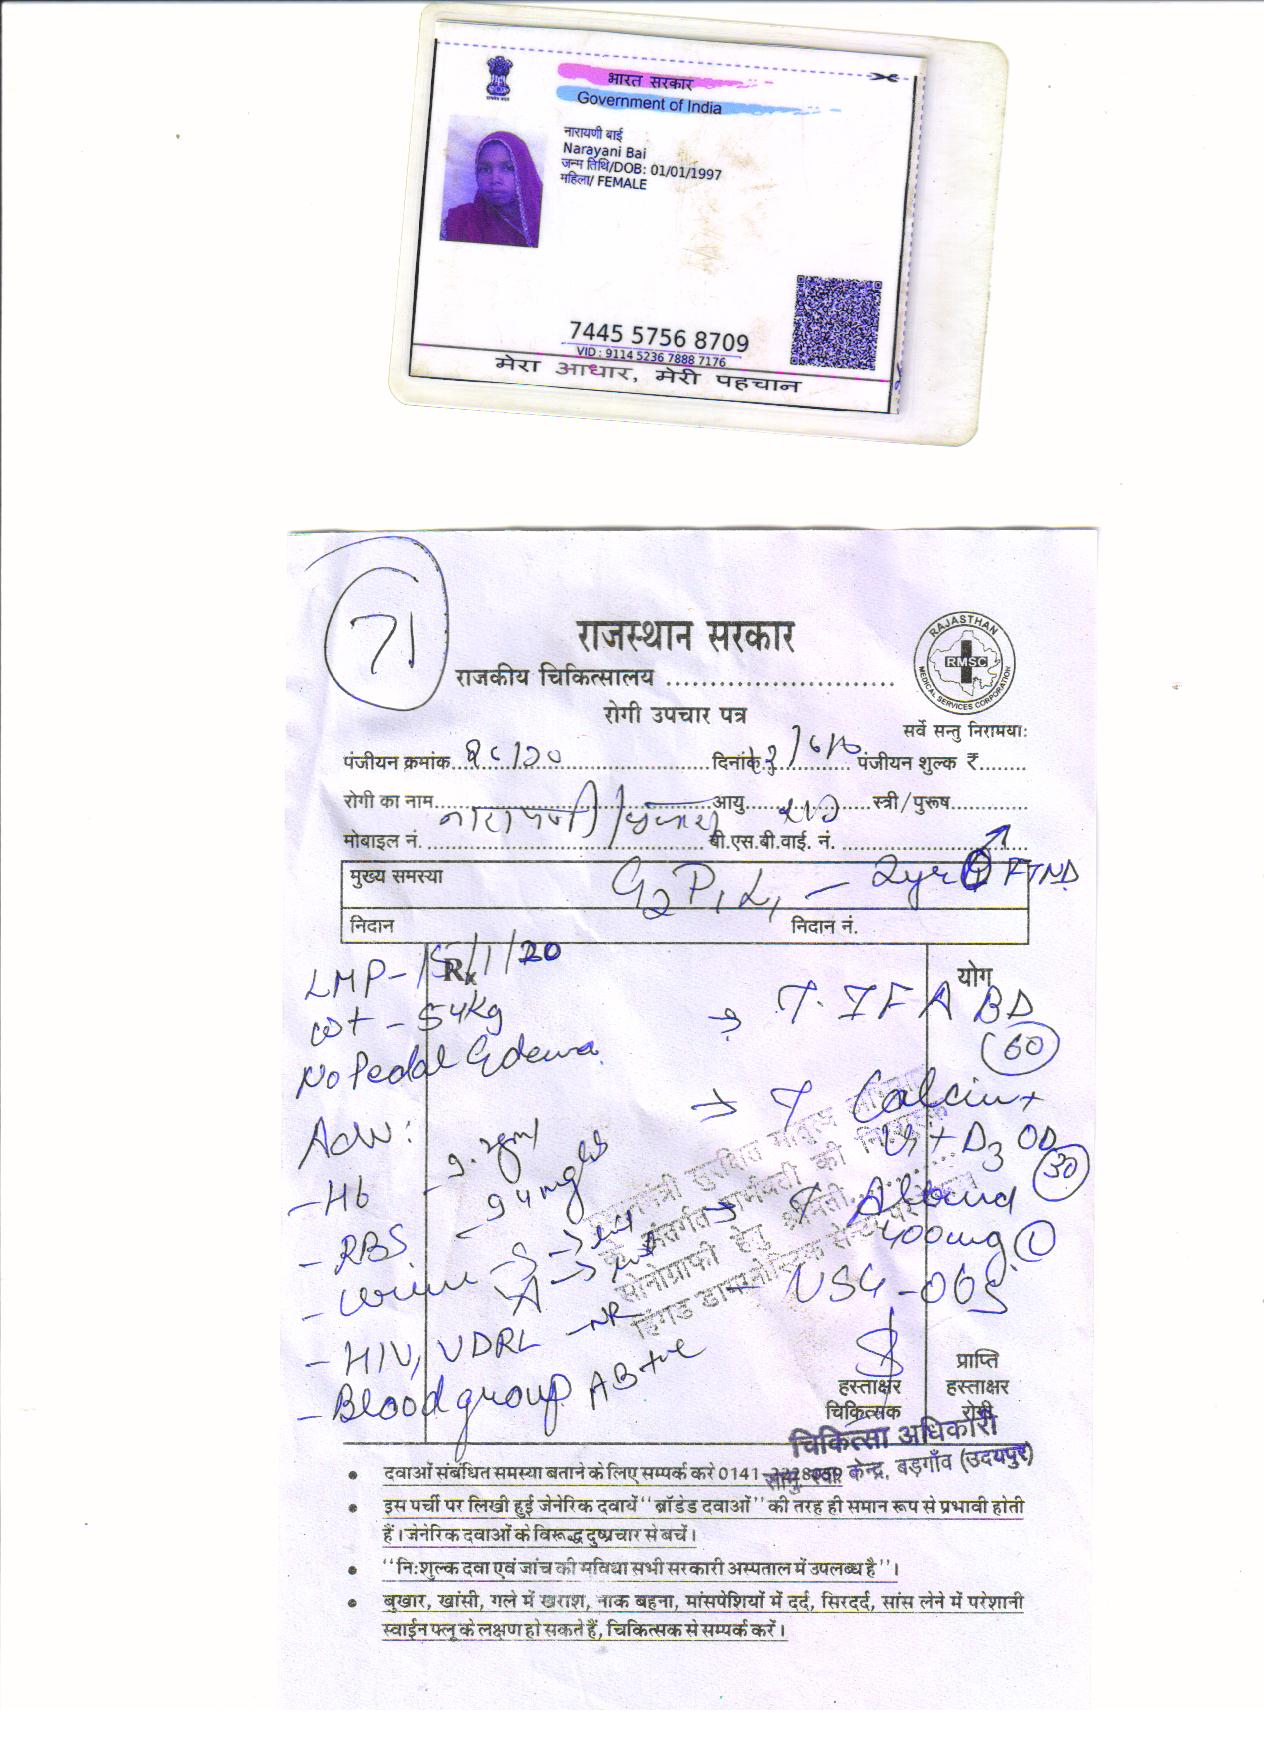 भारत सरकार
Government of India
नारायणी बाई
Narayani Bai
जन्म तिथि/DOB: 01/01/1997
महिला/ FEMALE
7445 5756 8709
VID : 9114 5236 7888 7176
मेरा आधार, मेरी पहचान
71
राजस्थान सरकार
राजकीय चिकित्सालय
RAJASTHAN
RMSC
MEDICAL SERVICES CORPORATION
रोगी उपचार पत्र
सर्वे सन्तु निरामयाः
पंजीयन क्रमांक दिनांक पंजीयन शुल्क ₹
रोगी का नाम नारायणी आयु स्त्री/पुरूष
मोबाइल नं. बी.एस.बी.वाई. नं.
मुख्य समस्या G2P1L1 - 2yr FTND
निदान निदान नं.
LMP - 15/1/20
Rx
योग
wt - 54kg
No Pedal Edema
Adv:
- Hb - 9.2gm
- RBS - 94mg
- Urine S
A
- HIV, VDRL - NR
- Blood group AB+ve
→ T. IFA BD
60
→ T Calcium +
Vit D3 OD
30
→ T Albend
400mg 1
- USG - OBS
प्रधानमंत्री सुरक्षित मातृत्व अभियान
के अंतर्गत गर्भवती की निःशुल्क
सोनोग्राफी हेतु श्रीमती
हिंगड डायग्नोस्टिक सेन्टर
हस्ताक्षर
चिकित्सक
प्राप्ति
हस्ताक्षर
रोगी
चिकित्सा अधिकारी
सामु. स्वा. केन्द्र, बड़गाँव (उदयपुर)
• दवाओं संबंधित समस्या बताने के लिए सम्पर्क करे 0141
• इस पर्ची पर लिखी हुई जेनेरिक दवायें "ब्रॉडेड दवाओं" की तरह ही समान रूप से प्रभावी होती
हैं। जेनेरिक दवाओं के विरूद्ध दुष्प्रचार से बचें।
• "निःशुल्क दवा एवं जांच की सुविधा सभी सरकारी अस्पताल में उपलब्ध है"।
• बुखार, खांसी, गले में खराश, नाक बहना, मांसपेशियों में दर्द, सिरदर्द, सांस लेने में परेशानी
स्वाईन फ्लू के लक्षण हो सकते हैं, चिकित्सक से सम्पर्क करें।